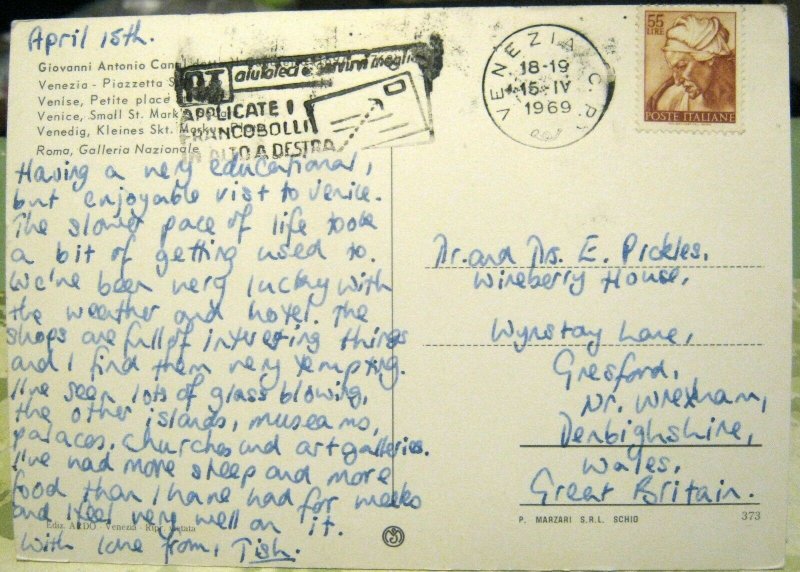 April 15th.
Giovanni Antonio
Venezia - Piazzetta S
Venise, Petite place
Venice, Small St. Mark
Venedig, Kleines Skt. Mark
Roma, Galleria Nazionale
PT aiutateci a servirvi meglio
APPLICATE I
FRANCOBOLLI
IN ALTO A DESTRA
VENEZIA C.P.
18-19
15.IV
1969
55
LIRE
POSTE ITALIANE
Having a very educational,
but enjoyable visit to Venice.
The slower pace of life took
a bit of getting used to.
We've been very lucky with
the weather and hotel. The
shops are full of interesting things
and I find them very tempting.
I've seen lots of glass blowing,
the other islands, museams,
palaces, churches and art galleries.
I've had more sleep and more
food than I have had for weeks
and I feel very well on it.
With love from, Tish.
Dr. and Mrs. E. Pickles,
Wineberry House,
Wynstay Lane,
Gresford,
Nr. Wrexham,
Denbighshire,
Wales,
Great Britain.
Ediz. ARDO - Venezia - Ripr. vietata
P. MARZARI S.R.L. SCHIO
373